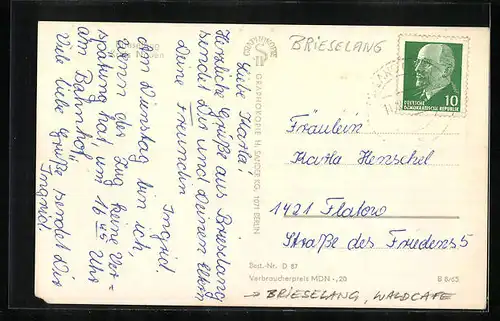 BRIESELANG
Brieselang
Kreis Nauen
Liebe Karla!
Herzliche Grüße aus Brieselang
sendet Dir und Deinen Eltern
Deine Freundin
Ingrid
Am Dienstag bin ich,
wenn der Zug keine Ver-
spätung hat, um 16 45 Uhr
am Bahnhof.
Viele liebe Grüße sendet Dir
Ingrid.
GRAPHOKOPIE H. SANDER KG. 1071 BERLIN
DEUTSCHE
DEMOKRATISCHE REPUBLIK
10
Fräulein
Karla Henschel
1421 Flatow
Straße des Friedens 5
Best.-Nr. D 87
Verbraucherpreis MDN -,20
B 8/65
→ BRIESELANG, WALDCAFE